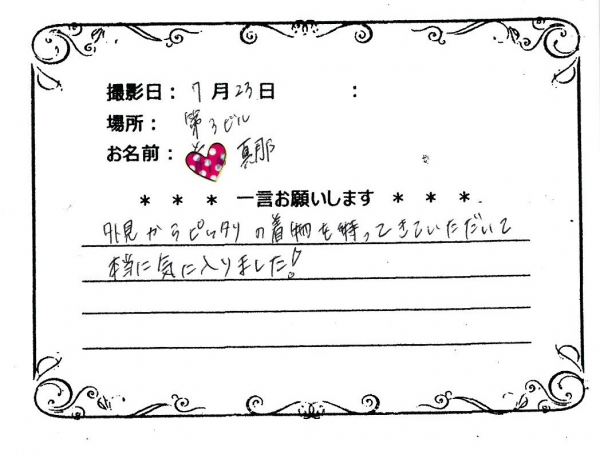 撮影日： 7月23日 ：
場所： 第3ビル
お名前： 真那
＊ ＊ ＊ 一言お願いします ＊ ＊ ＊
外見からピッタリの着物を持ってきていただいて
本当に気に入りました！